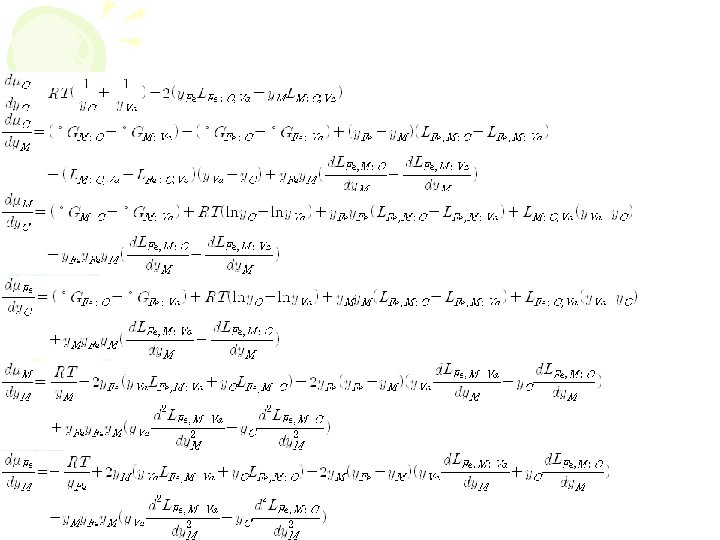 dμ_C/dy_C RT(1/y_C + 1/y_Va) − 2(y_Fe L_Fe:C,Va − y_M L_M:C,Va)
dμ_C/dy_M = (°G_M:C − °G_M:Va) − (°G_Fe:C − °G_Fe:Va) + (y_Fe − y_M)(L_Fe,M:C − L_Fe,M:Va)
− (L_M:C,Va − L_Fe:C,Va)(y_Va − y_C) + y_Fe y_M(dL_Fe,M:C/dy_M − dL_Fe,M:Va/dy_M)
dμ_M/dy_C = (°G_M:C − °G_M:Va) + RT(ln y_C − ln y_Va) + y_Fe y_Fe(L_Fe,M:C − L_Fe,M:Va) + L_M:C,Va(y_Va y_C)
− y_Fe y_Fe y_M(dL_Fe,M:C/dy_M − dL_Fe,M:Va/dy_M)
dμ_Fe/dy_C = (°G_Fe:C − °G_Fe:Va) + RT(ln y_C − ln y_Va) + y_M y_M(L_Fe,M:C − L_Fe,M:Va) + L_Fe:C,Va(y_Va y_C)
+ y_M y_Fe y_M(dL_Fe,M:Va/dy_M − dL_Fe,M:C/dy_M)
dμ_M/dy_M = RT/y_M − 2y_Fe(y_Va L_Fe,M:Va + y_C L_Fe,M:C) − 2y_Fe(y_Fe − y_M)(y_Va dL_Fe,M:Va/dy_M − y_C dL_Fe,M:C/dy_M)
+ y_Fe y_Fe y_M(y_Va d²L_Fe,M:Va/dy²_M − y_C d²L_Fe,M:C/dy²_M)
dμ_Fe/dy_M = − RT/y_Fe + 2y_M(y_Va L_Fe,M:Va + y_C L_Fe,M:C) − 2y_M(y_Fe − y_M)(y_Va dL_Fe,M:Va/dy_M + y_C dL_Fe,M:C/dy_M)
− y_M y_Fe y_M(y_Va d²L_Fe,M:Va/dy²_M − y_C d²L_Fe,M:C/dy²_M)